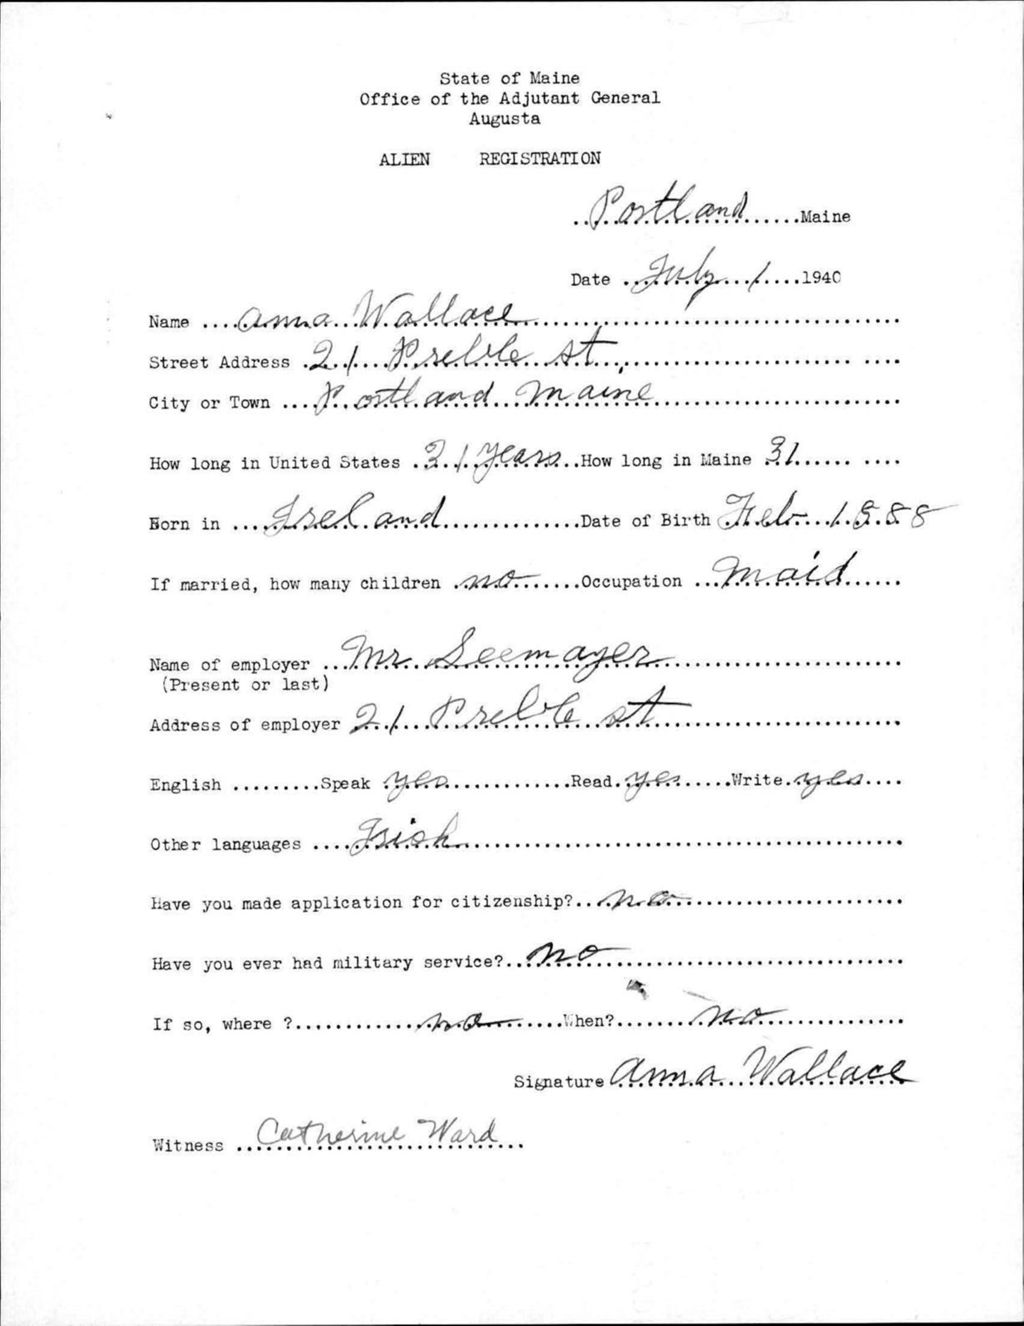 State of Maine
Office of the Adjutant General
Augusta
ALIEN REGISTRATION
..Portland......Maine
Date ..July...1....1940
Name ....Anna Wallace......
Street Address .21 Preble st......
City or Town ....Portland Maine......
How long in United States ..31 years..How long in Maine 31......
Born in ....Ireland......Date of Birth Feb 1888
If married, how many children .no......Occupation ...maid......
Name of employer ...Mr. Seemayer......
(Present or last)
Address of employer 21 Preble st......
English .........Speak yes......Read.yes......Write.yes....
Other languages ....Irish......
Have you made application for citizenship?...no......
Have you ever had military service?..no......
If so, where ?......no......When?......no......
Signature Anna Wallace
Witness ..Catherine Ward...